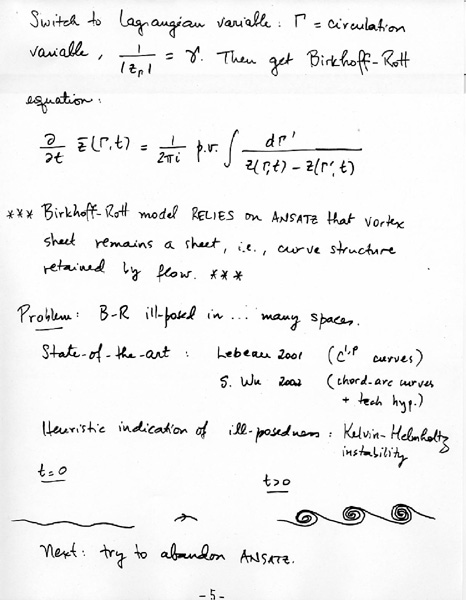 Switch to Lagrangian variable: Γ = circulation
variable, 1/|z_Γ| = γ. Then get Birkhoff-Rott
equation:
∂/∂t z̄(Γ,t) = 1/2πi p.v. ∫ dΓ'/z(Γ,t) - z(Γ',t)
*** Birkhoff-Rott model RELIES on ANSATZ that vortex
sheet remains a sheet, i.e., curve structure
retained by flow. ***
Problem: B-R ill-posed in ... many spaces.
State-of-the-art: Lebeau 2001 (C^{1,ρ} curves)
S. Wu 2002 (chord-arc curves
+ tech hyp.)
Heuristic indication of ill-posedness: Kelvin-Helmholtz
instability
t=0 t>0
→
Next: try to abandon ANSATZ.
-5-